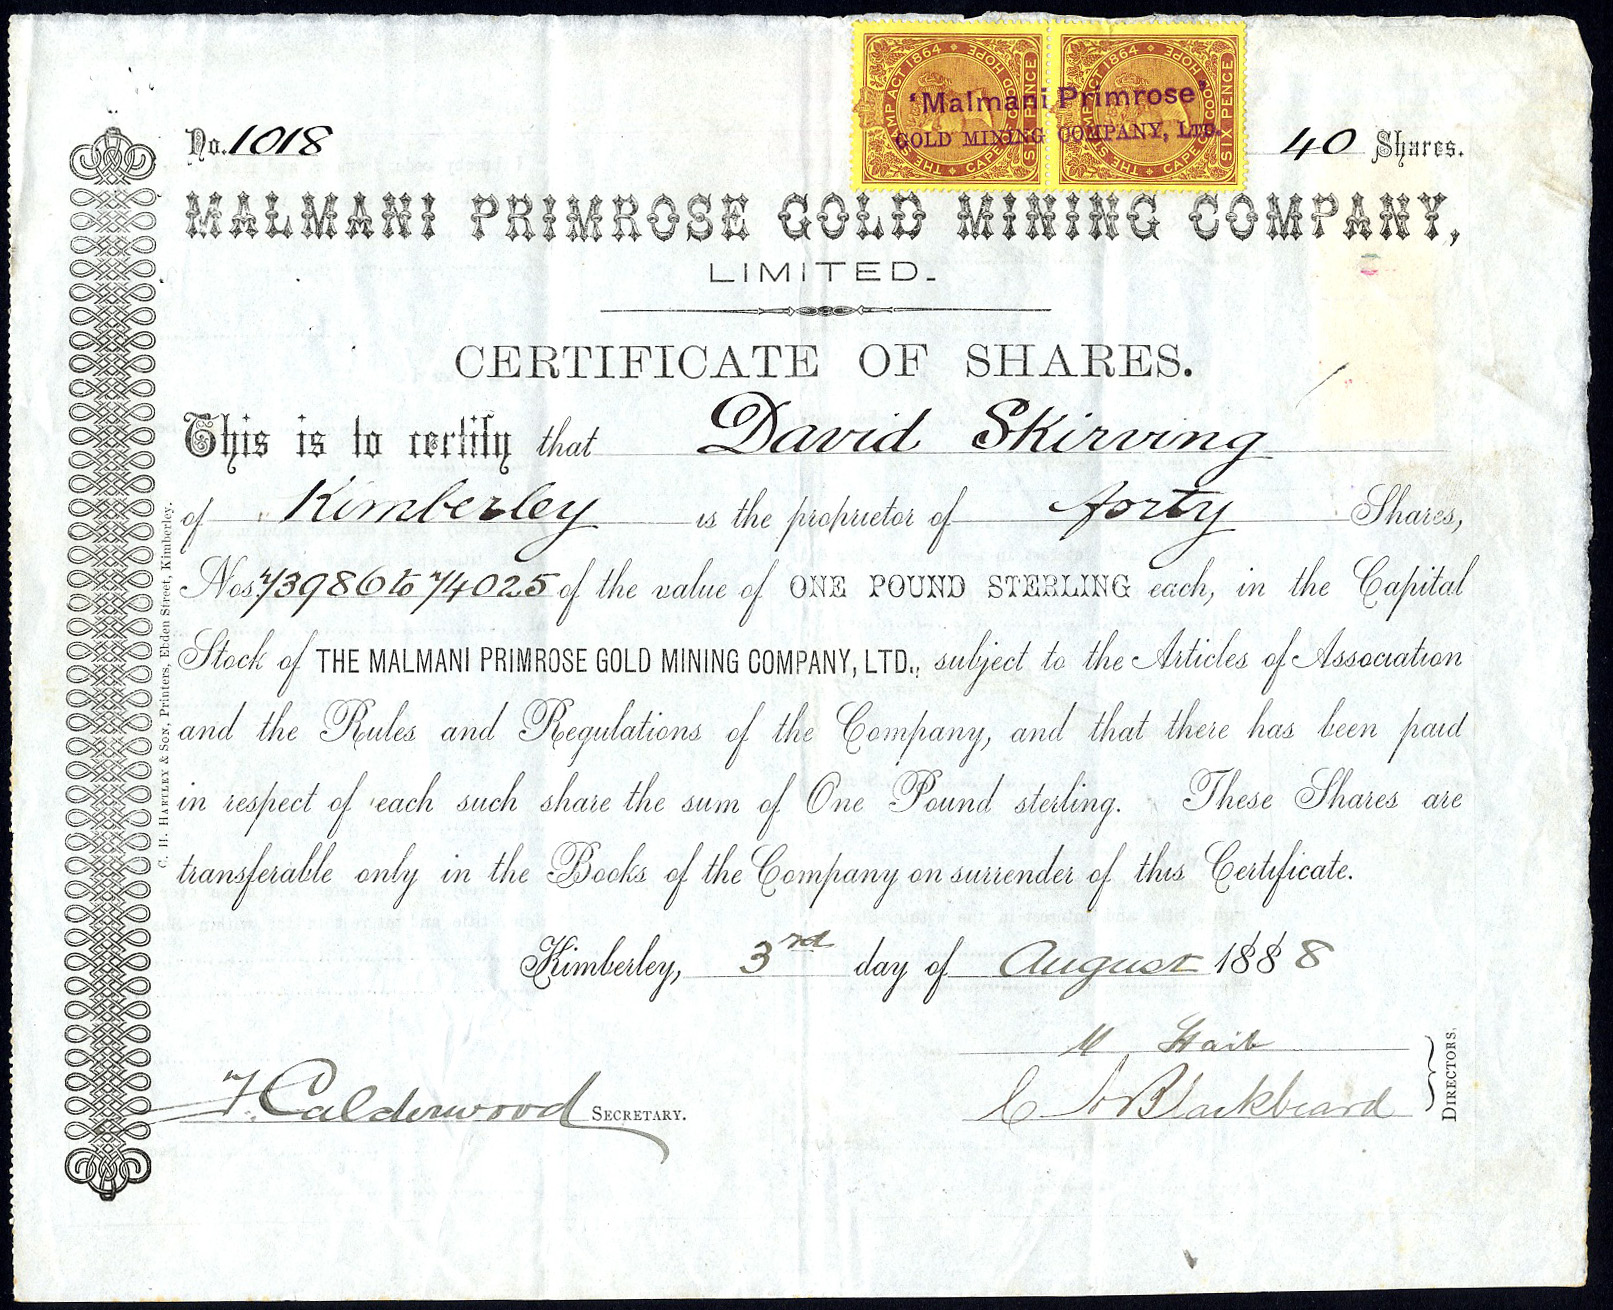 THE STAMP ACT 1864 CAPE OF GOOD HOPE SIX PENCE
THE STAMP ACT 1864 CAPE OF GOOD HOPE SIX PENCE
'Malmani Primrose'
GOLD MINING COMPANY, LTD.
No. 1018
40 Shares.
MALMANI PRIMROSE GOLD MINING COMPANY,
LIMITED.
CERTIFICATE OF SHARES.
This is to certify that David Skirving
of Kimberley is the proprietor of forty Shares,
Nos. 73986 to 74025 of the value of ONE POUND STERLING each, in the Capital
Stock of THE MALMANI PRIMROSE GOLD MINING COMPANY, LTD., subject to the Articles of Association
and the Rules and Regulations of the Company, and that there has been paid
in respect of each such share the sum of One Pound sterling. These Shares are
transferable only in the Books of the Company on surrender of this Certificate.
Kimberley, 3rd day of August 1888
Calderwood SECRETARY.
Blackbeard
DIRECTORS.
C. H. HARTLEY & SON, Printers, Ebden Street, Kimberley.